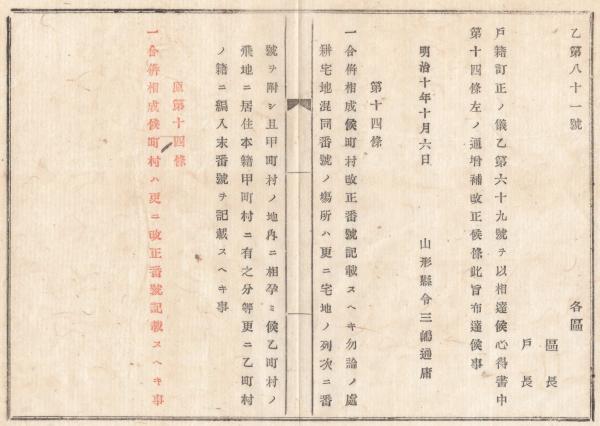 乙第八十一號
各區
區長
戸長
戸籍訂正ノ儀乙第六十九號ヲ以相達候心得書中
第十四條左ノ通增補改正候條此旨布達候事
明治十年十月六日
山形縣令三島通庸
第十四條
一合併相成候町村改正番號記載スヘキ勿論ノ處
耕宅地混同番號ノ場所ハ更ニ宅地ノ列次ニ番
號ヲ附シ且甲町村ノ地內ニ相孕ミ候乙町村ノ
飛地ニ居住本籍甲町村ニ有之分等更ニ乙町村
ノ籍ニ編入末番號ヲ記載スヘキ事
原第十四條
一合併相成候町村ハ更ニ改正番號記載スヘキ事